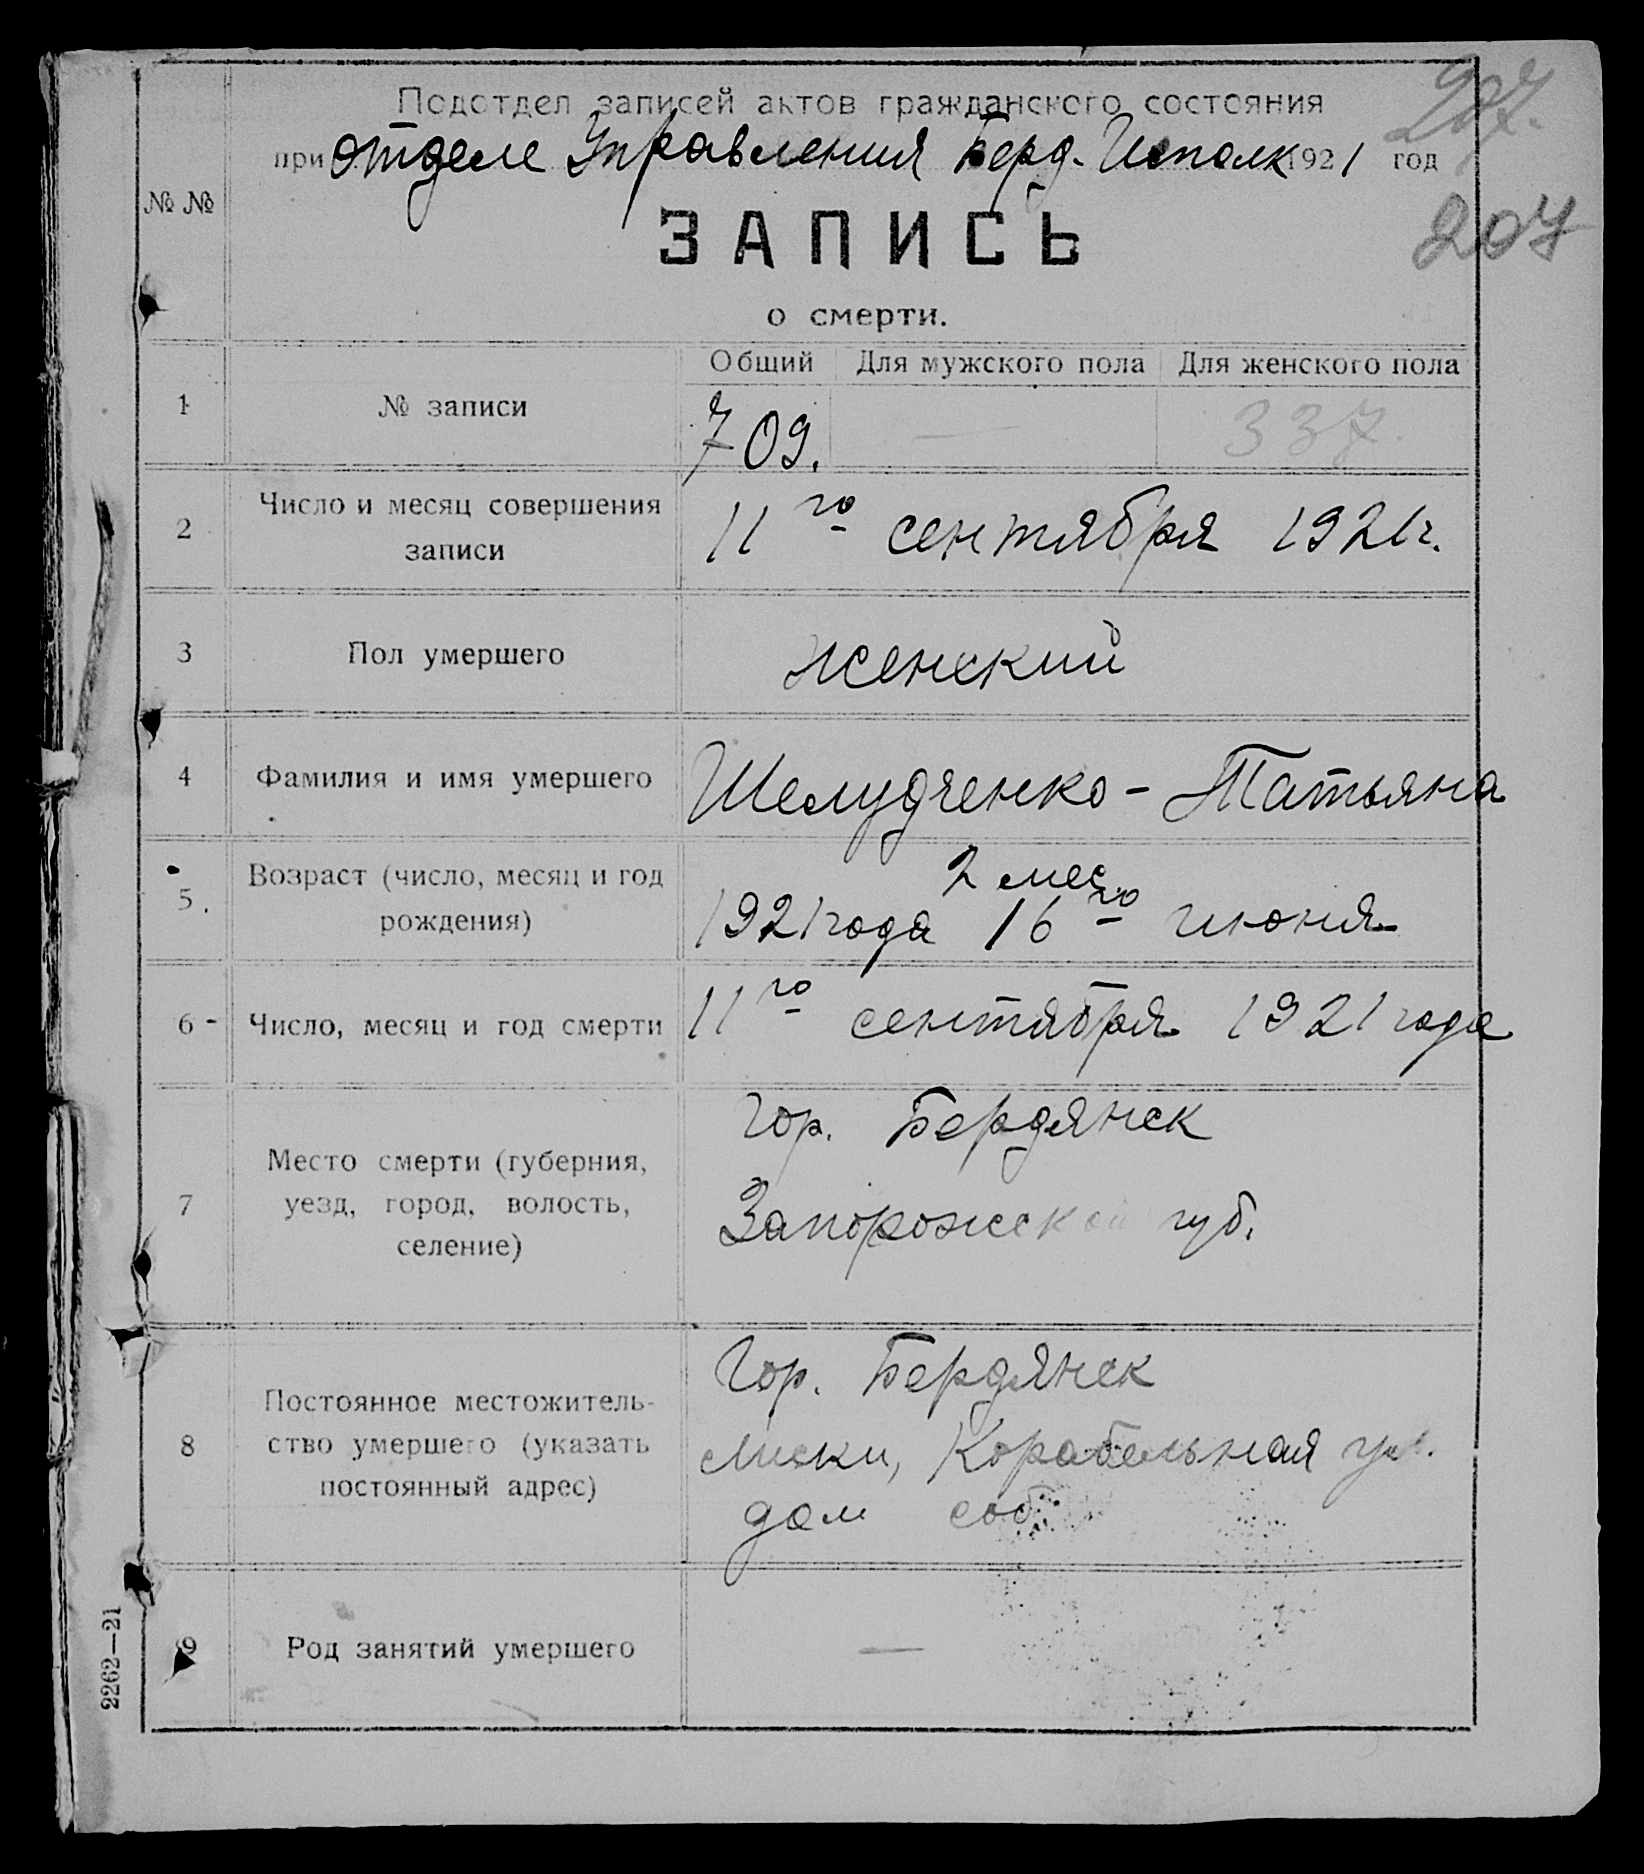 207.
Подотдел записей актов гражданского состояния
при отделе Управления Берд. Исполк 1921 год
207
№ №
ЗАПИСЬ
о смерти.
Общий Для мужского пола Для женского пола
1 № записи 709. — 337
2 Число и месяц совершения записи 11го сентября 1921г.
3 Пол умершего женский
4 Фамилия и имя умершего Шелудченко - Татьяна
2 мес.
5. Возраст (число, месяц и год рождения) 1921 года 16го июня
6 - Число, месяц и год смерти 11го сентября 1921 года
гор. Бердянск
7 Место смерти (губерния, уезд, город, волость, селение) Запорожской губ.
Гор. Бердянск
8 Постоянное местожитель-
ство умершего (указать постоянный адрес) Лиски, Корабельная ул.
дом соб
9 Род занятий умершего —
2262—21